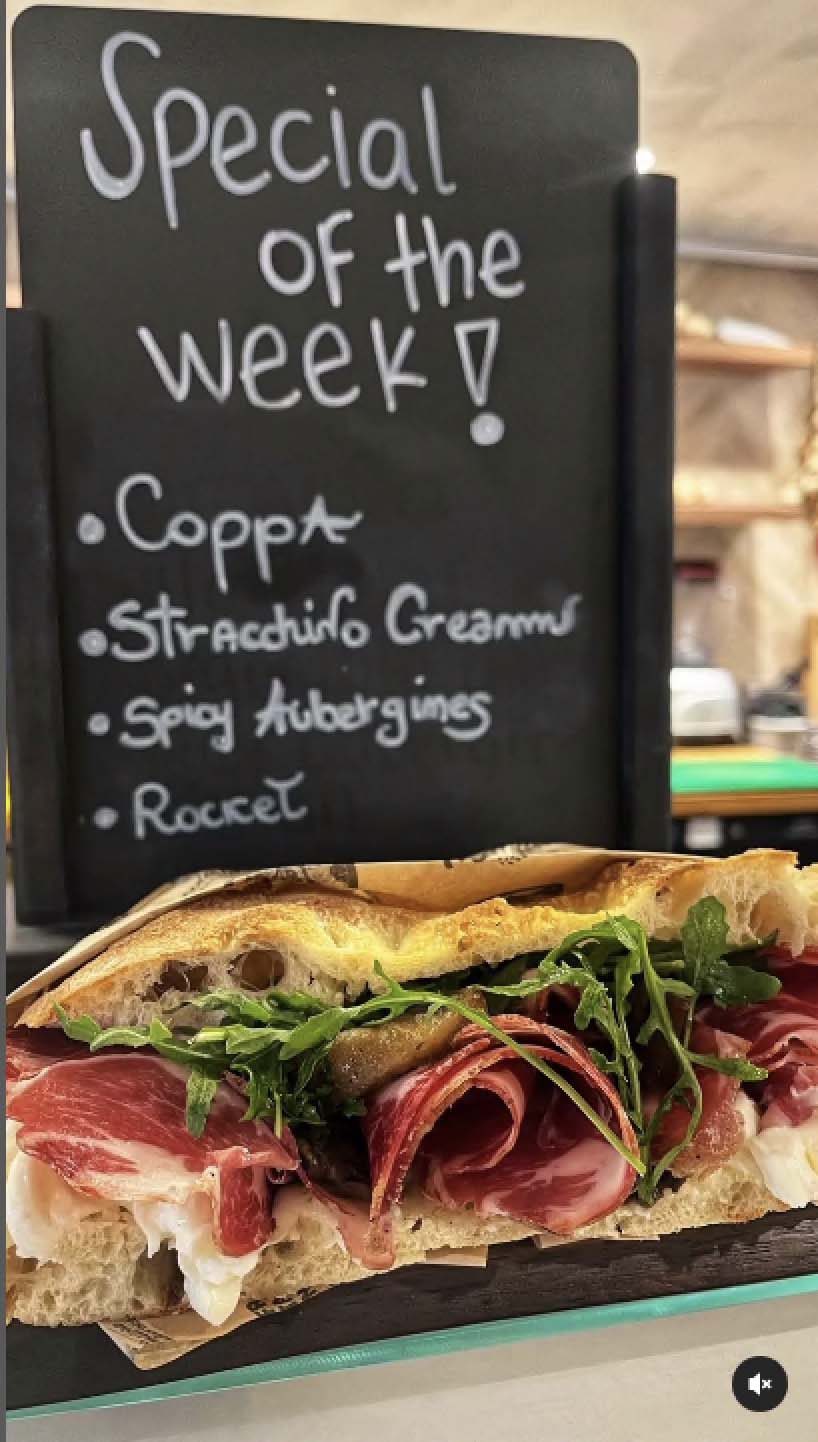 Special
OF the
week!
• CoppA
• StrAcchino
• Spicy Aubergines
• Rocket